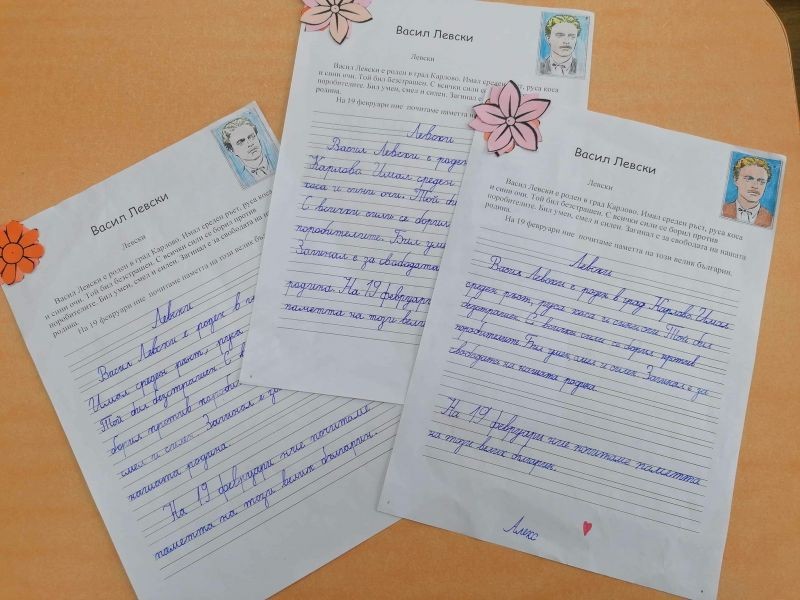 Васил Левски
Левски
Васил Левски е роден в град Карлово. Имал среден ръст, руса коса
и сини очи. Той бил безстрашен. С всички сили се борил против
поробителите. Бил умен, смел и силен. Загинал е за свободата на
родина.
На 19 февруари ние почитаме паметта на този велик
Левски
Васил Левски е роден в
Имал среден ръст, руса
Той бил безстрашен. С
борил против
смел и силен. Загинал е за
нашата родина.
На 19 февруари ние почитаме
паметта на този велик българин.
Васил Левски
Левски
Васил Левски е роден в град Карлово. Имал среден ръст, руса коса
и сини очи. Той бил безстрашен. С всички сили се
поробителите. Бил умен, смел и силен. Загинал е
родина.
На 19 февруари ние почитаме паметта на
Левски
Васил Левски е роден
Карлово. Имал среден
коса и сини очи. Той бил
С всички сили се борил
поробителите. Бил
Загинал е за свободата
родина. На 19 февруари
паметта на този
Васил Левски
Левски
Васил Левски е роден в град Карлово. Имал среден ръст, руса коса
и сини очи. Той бил безстрашен. С всички сили се борил против
поробителите. Бил умен, смел и силен. Загинал е за свободата на нашата
родина.
На 19 февруари ние почитаме паметта на този велик българин.
Левски
Васил Левски е роден в град Карлово. Имал
среден ръст, руса коса и сини очи. Той бил
безстрашен. С всички сили се борил против
поробителите. Бил умен, смел и силен. Загинал е за
свободата на нашата родина.
На 19 февруари ние почитаме паметта
на този велик българин.
Алекс